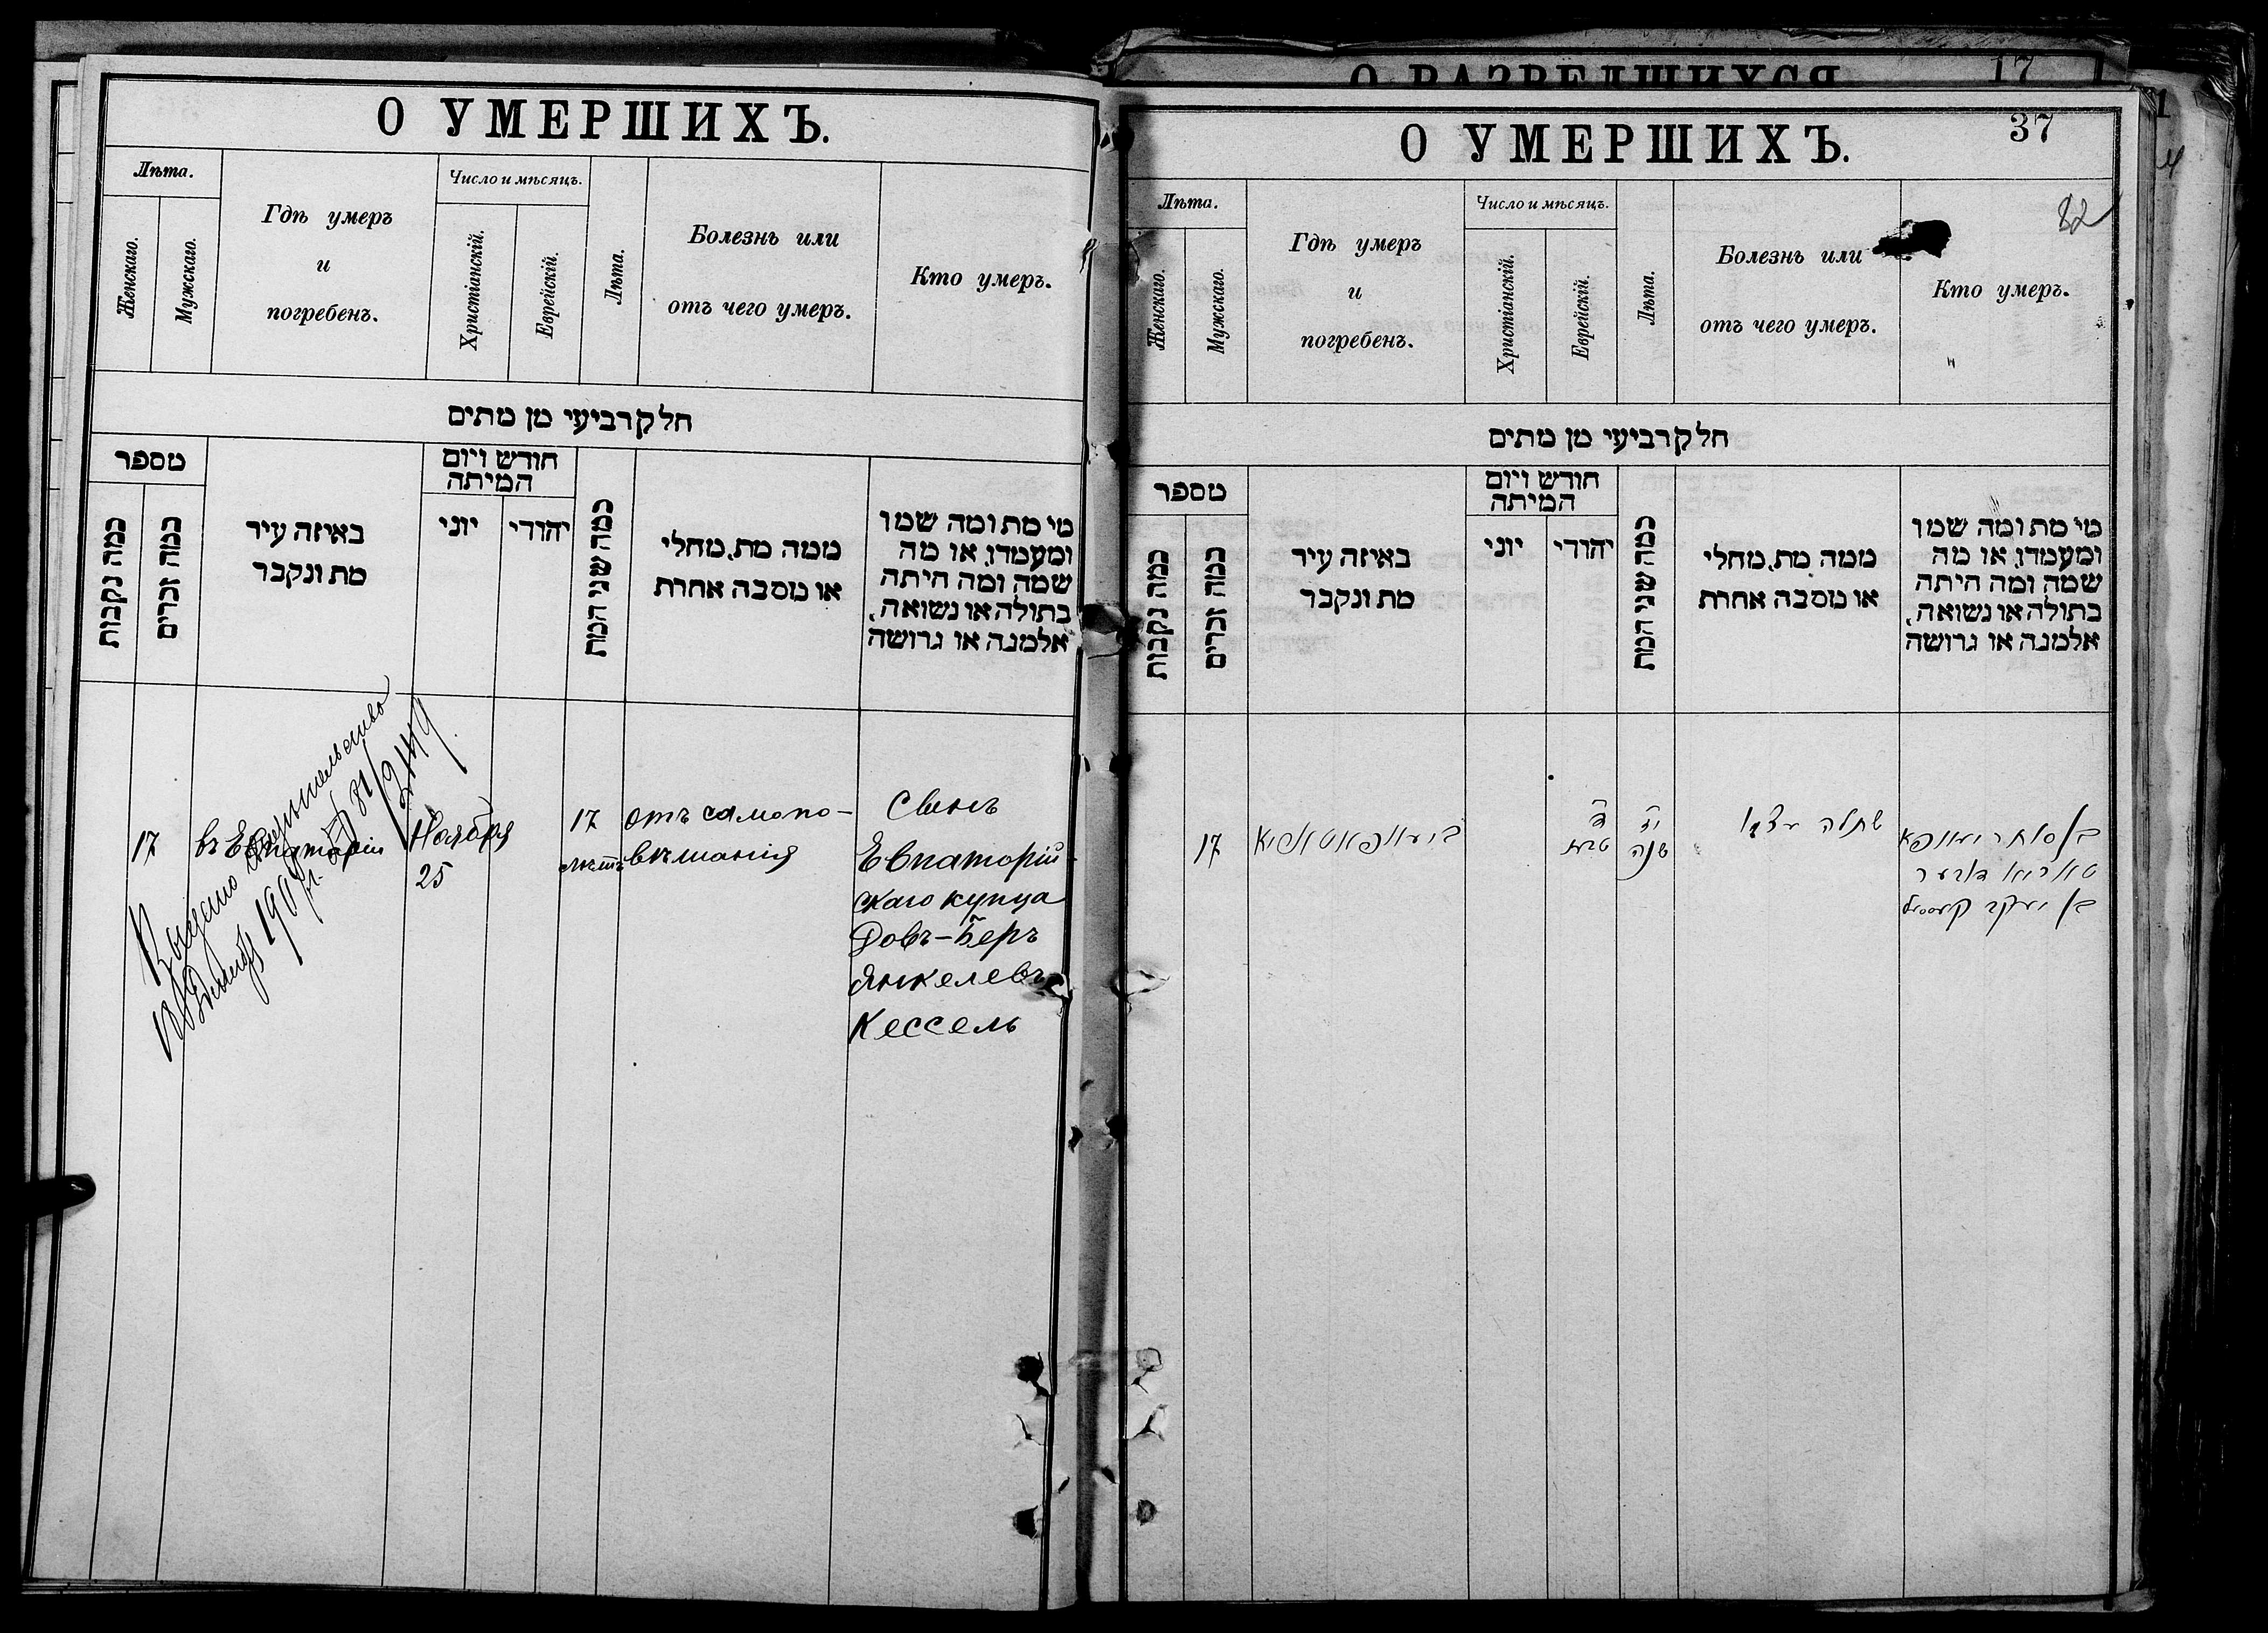 О УМЕРШИХЪ.
Лѣта.
Женскаго.
Мужскаго.
Гдѣ умеръ
и
погребенъ.
Число и мѣсяцъ.
Христіанскій.
Еврейскій.
Лѣта.
Болезнь или
отъ чего умеръ.
Кто умеръ.
חלק רביעי מן מתים
מספר
כמה נקבות
כמה זכרים
באיזה עיר
מת ונקבר
חודש ויום
המיתה
יוני
יהודי
כמה שני המת
ממה מת, מחלי
או מסבה אחרת
מי מת ומה שמו
ומעמדו, או מה
שמה ומה היתה
בתולה או נשואה,
אלמנה או גרושה
17
въ Евпаторіи
Ноября
25
17
лѣтъ
отъ самопо-
вѣшанія
Сынъ
Евпаторій
скаго купца
Довъ-Беръ
Янкелевъ
Кессель
Выдано
О РАЗВЕДШИХСЯ
17
О УМЕРШИХЪ.
37
82
Лѣта.
Женскаго.
Мужскаго.
Гдѣ умеръ
и
погребенъ.
Число и мѣсяцъ.
Христіанскій.
Еврейскій.
Лѣта.
Болезнь или
отъ чего умеръ.
Кто умеръ.
חלק רביעי מן מתים
מספר
כמה נקבות
כמה זכרים
באיזה עיר
מת ונקבר
חודש ויום
המיתה
יוני
יהודי
כמה שני המת
ממה מת, מחלי
או מסבה אחרת
מי מת ומה שמו
ומעמדו, או מה
שמה ומה היתה
בתולה או נשואה,
אלמנה או גרושה
17
טבת
יז
שנה
שתלה עצמו
בן סוחר
בן יעקב קעססעל